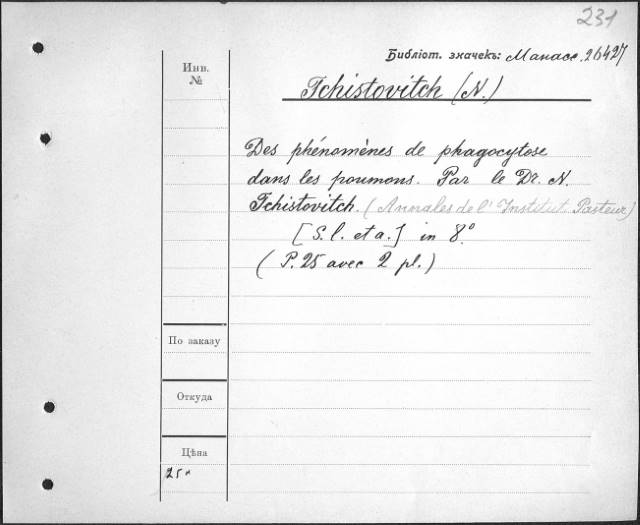 231
Библіот. значекъ: Манасс. 26427
Инв.
№
Tchistovitch (N.)
Des phénomènes de phagocytose
dans les poumons. Par le Dr. N.
Tchistovitch. (Annales de l'Institut Pasteur)
[S. l. et a.] in 8.°
(P. 25 avec 2 pl.)
По заказу
Откуда
Цѣна
25